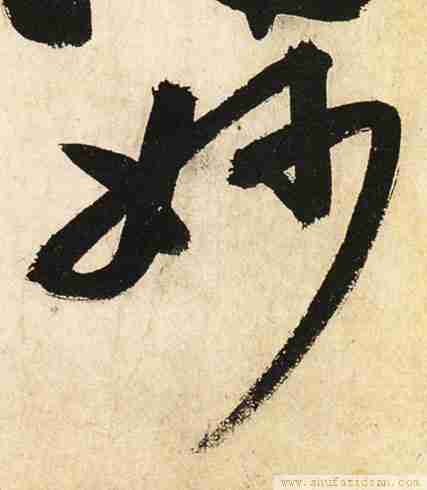 妙
www.shufazidian.com